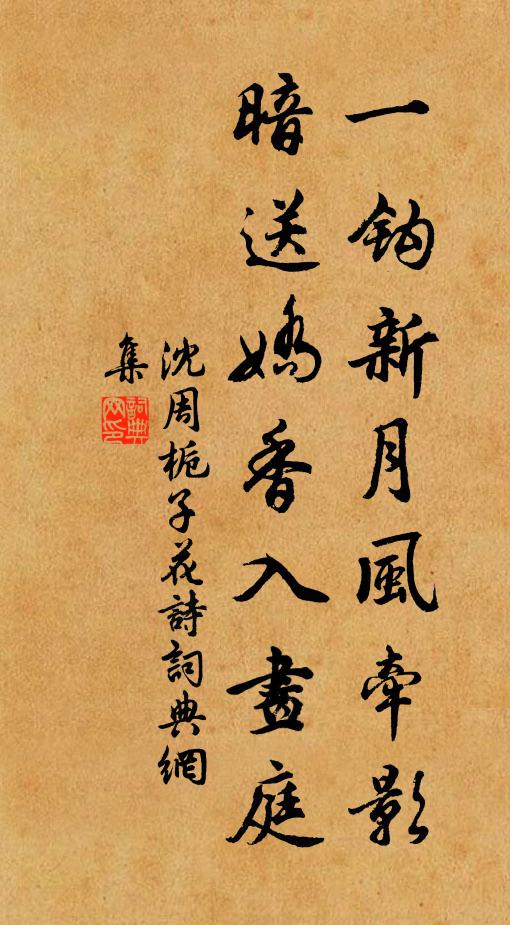 一鈎新月風牽影
暗送嬌香入畫庭
沈周梔子花詩詞典網
集
詞典網印